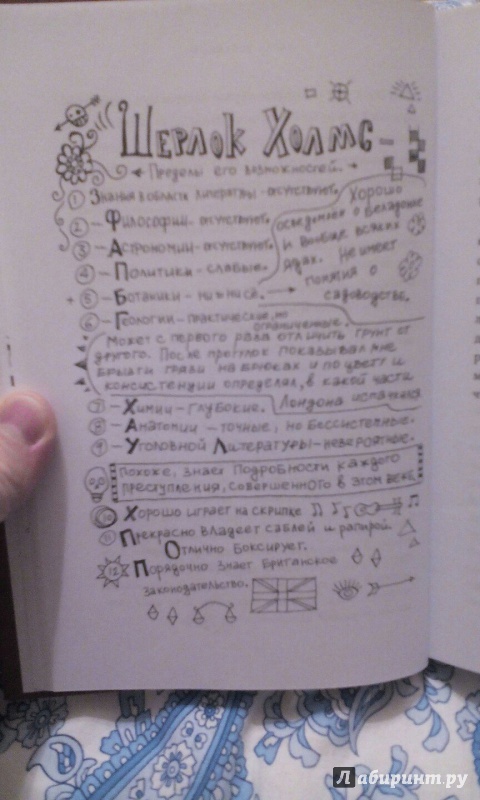 Шерлок Холмс –
Пределы его возможностей.
1 Знания в области литературы – отсутствуют.
2 – Философии – отсутствуют.
3 – Астрономии – отсутствуют.
4 – Политики – слабые.
5 – Ботаники –
Хорошо
осведомлен о белладонне
и вообще всяких
ядах. Не имеет
понятия о
садоводстве.
6 – Геологии – практические, но
ограниченные.
Может с первого раза отличить грунт от
другого. После прогулок показывал мне
брызги грязи на брюках и по цвету и
консистенции определял, в какой части
Лондона испачкался
7 – Химии – глубокие.
8 – Анатомии – точные, но бессистемные.
9 – Уголовной Литературы – невероятные.
Похоже, знает подробности каждого
преступления, совершенного в этом веке.
10 Хорошо играет на скрипке
11 Прекрасно владеет саблей и рапирой
Отлично боксирует.
12 Порядочно знает Британское
законодательство.
Лабиринт.ру